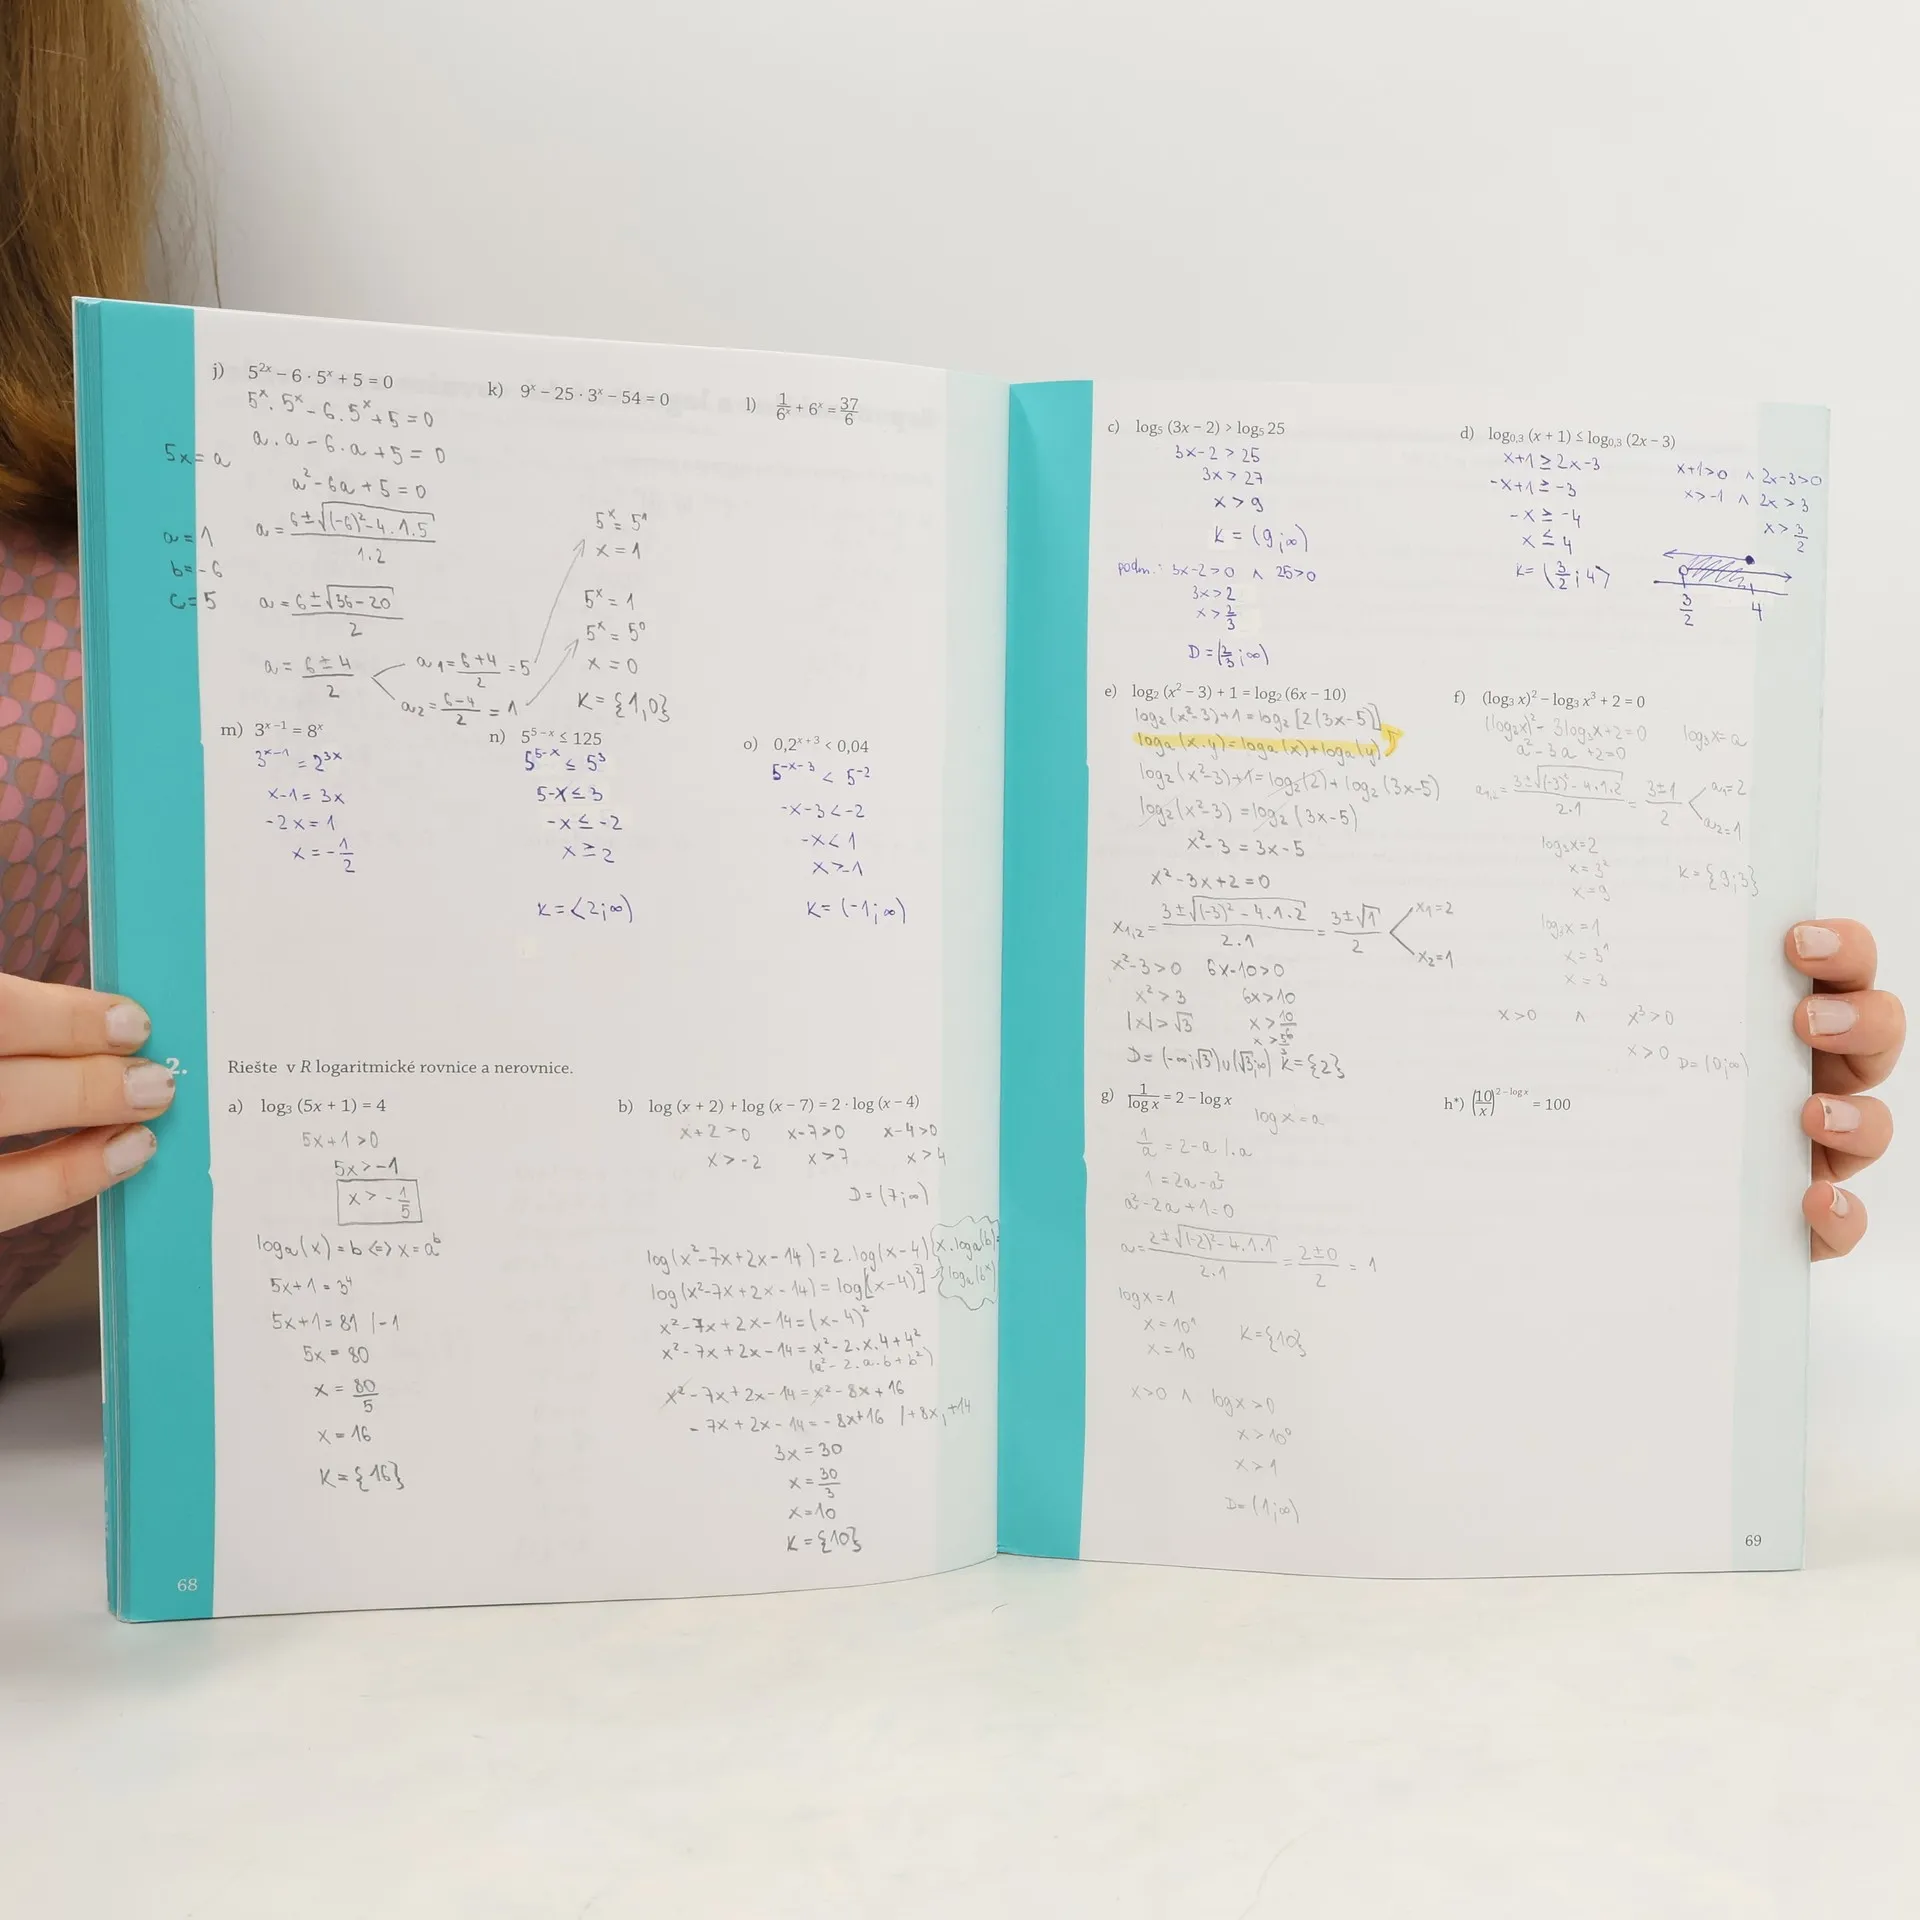 j) 5^{2x} – 6 · 5^x + 5 = 0
5^x . 5^x - 6 . 5^x + 5 = 0
a . a - 6 . a + 5 = 0
5x = a
a² - 6a + 5 = 0
a = 1
b = -6
c = 5
a = (6 ± √((-6)² - 4 . 1 . 5)) / 1.2
a = (6 ± √(36 - 20)) / 2
a = (6 ± 4) / 2
a₁ = (6+4)/2 = 5
a₂ = (6-4)/2 = 1
5^x = 5^1
x = 1
5^x = 1
5^x = 5^0
x = 0
K = {1,0}
k) 9^x – 25 · 3^x – 54 = 0
l) 1/6^x + 6^x = 37/6
m) 3^{x – 1} = 8^x
3^{x-1} = 2^{3x}
x-1 = 3x
-2x = 1
x = -1/2
n) 5^{5 – x} ≤ 125
5^{5-x} ≤ 5^3
5-x ≤ 3
-x ≤ -2
x ≥ 2
K = ⟨2;∞)
o) 0,2^{x + 3} < 0,04
5^{-x-3} < 5^{-2}
-x-3 < -2
-x < 1
x > -1
K = (-1;∞)
2. Riešte v R logaritmické rovnice a nerovnice.
a) log₃ (5x + 1) = 4
5x+1 > 0
5x > -1
x > -1/5
log_a(x) = b <=> x = a^b
5x+1 = 3^4
5x+1 = 81 /-1
5x = 80
x = 80/5
x = 16
K = {16}
b) log (x + 2) + log (x – 7) = 2 · log (x – 4)
x+2 > 0 x-7 > 0 x-4 > 0
x > -2 x > 7 x > 4
D = (7;∞)
log(x²-7x+2x-14) = 2 . log(x-4)
x . log_a(b) =
log(x²-7x+2x-14) = log[(x-4)²]
log_a(b^x)
x²-7x+2x-14 = (x-4)²
x²-7x+2x-14 = x²-2.x.4+4²
(a²-2.a.b+b²)
x²-7x+2x-14 = x²-8x+16
-7x+2x-14 = -8x+16 /+8x, +14
3x = 30
x = 30/3
x = 10
K = {10}
68
c) log₅ (3x – 2) > log₅ 25
3x-2 > 25
3x > 27
x > 9
K = (9;∞)
podm.: 3x-2 > 0 ∧ 25 > 0
3x > 2
x > 2/3
D = (2/3;∞)
d) log₀,₃ (x + 1) ≤ log₀,₃ (2x – 3)
x+1 ≥ 2x-3
-x+1 ≥ -3
-x ≥ -4
x ≤ 4
K = (3/2;4⟩
x+1 > 0 ∧ 2x-3 > 0
x > -1 ∧ 2x > 3
x > 3/2
3/2 4
e) log₂ (x² – 3) + 1 = log₂ (6x – 10)
log₂(x²-3)+1 = log₂[2(3x-5)]
log_a(x.y) = log_a(x)+log_a(y)
log₂(x²-3)+1 = log₂(2)+log₂(3x-5)
log₂(x²-3) = log₂(3x-5)
x²-3 = 3x-5
x²-3x+2 = 0
x₁,₂ = (3±√((-3)²-4.1.2)) / 2.1 = (3±√1)/2
x₁=2
x₂=1
x²-3 > 0 6x-10 > 0
x² > 3 6x > 10
|x| > √3 x > 10/6
x > 5/3
D = (-∞;√3)∪(√3;∞) K = {2}
f) (log₃ x)² – log₃ x³ + 2 = 0
(log₂x)² - 3log₃x+2=0 log₃x=a
a²-3a+2=0
a₁,₂ = (3±√((-3)²-4.1.2)) / 2.1 = (3±1)/2
a₁=2
a₂=1
log₃x=2
x=3²
x=9
K={9;3}
log₂x=1
x=3^1
x=3
x>0 ∧ x³>0
x>0 D=(0;∞)
g) 1/log x = 2 – log x
log x = a
1/a = 2-a /.a
1 = 2a-a²
a²-2a+1=0
a = (2±√((-2)²-4.1.1)) / 2.1 = (2±0)/2 = 1
log x = 1
x = 10^1
x = 10
K={10}
x>0 ∧ log x>0
x>10^0
x>1
D=(1;∞)
h*) (10/x)^{2 – log x} = 100
69